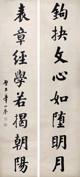 鉤抉文心如堕明月
表章經學若揭朝陽